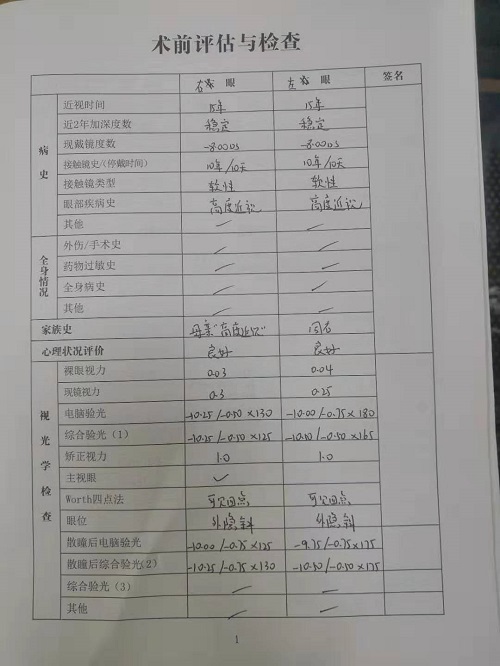 术前评估与检查
右 眼 左 眼 签名
病史
近视时间 15年 15年
近2年加深度数 稳定 稳定
现戴镜度数 -8.00DS -8.00DS
接触镜史/(停戴时间) 10年/10天 10年/10天
接触镜类型 软性 软性
眼部疾病史 高度近视 高度近视
其他 / /
全身情况
外伤/手术史 / /
药物过敏史 / /
全身病史 / /
其他 / /
家族史 母亲"高度近视" 同右
心理状况评价 良好 良好
视光学检查
裸眼视力 0.03 0.04
现镜视力 0.3 0.25
电脑验光 -10.25/-0.50×130 -10.00/-0.75×180
综合验光(1) -10.25/-0.50×125 -10.50/-0.50×165
矫正视力 1.0 1.0
主视眼 ✓
Worth四点法 可见四点 可见四点
眼位 外隐斜 外隐斜
散瞳后电脑验光 -10.00/-0.75×125 -9.75/-0.75×175
散瞳后综合验光(2) -10.25/-0.75×130 -10.50/-0.50×175
综合验光(3) / /
其他 / /
1